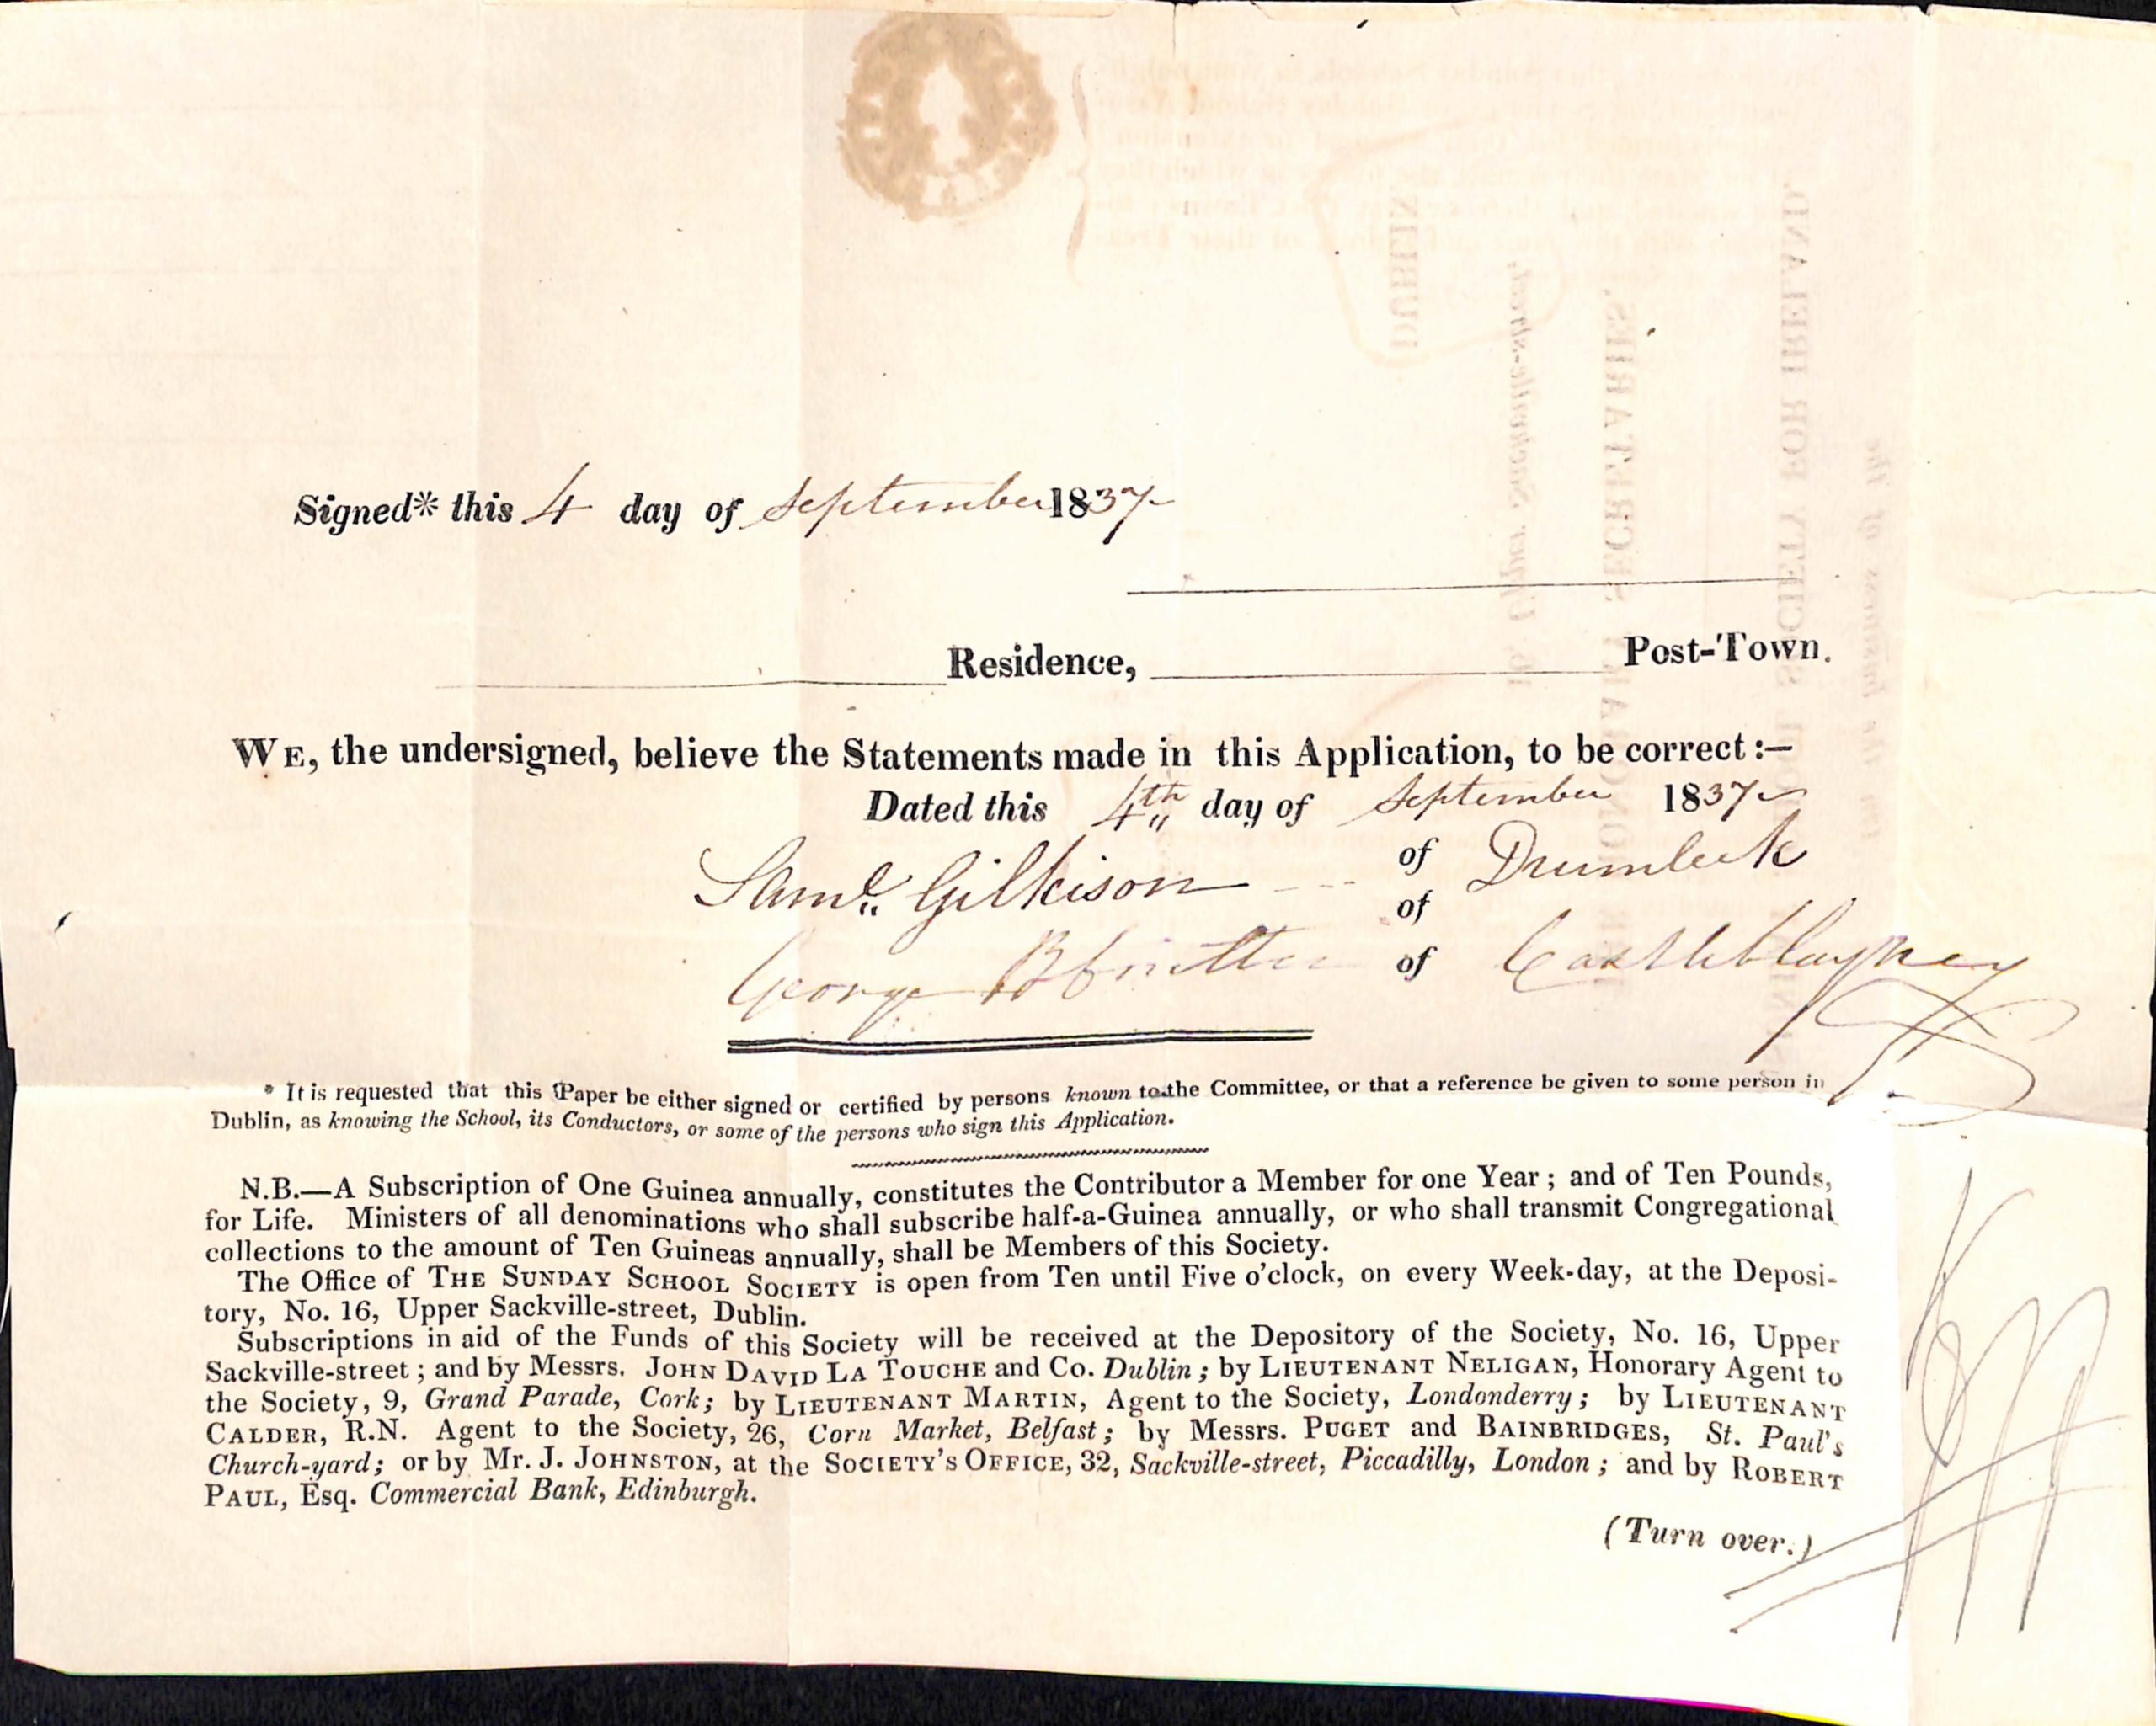 Signed* this 4 day of September 1837
Residence, Post-Town.
WE, the undersigned, believe the Statements made in this Application, to be correct:—
Dated this 4th day of September 1837
Saml. Gilkison of Drumleek
of
George of Castleblayney
* It is requested that this Paper be either signed or certified by persons known to the Committee, or that a reference be given to some person in
Dublin, as knowing the School, its Conductors, or some of the persons who sign this Application.
N.B.—A Subscription of One Guinea annually, constitutes the Contributor a Member for one Year; and of Ten Pounds,
for Life. Ministers of all denominations who shall subscribe half-a-Guinea annually, or who shall transmit Congregational
collections to the amount of Ten Guineas annually, shall be Members of this Society.
The Office of THE SUNDAY SCHOOL SOCIETY is open from Ten until Five o'clock, on every Week-day, at the Deposi-
tory, No. 16, Upper Sackville-street, Dublin.
Subscriptions in aid of the Funds of this Society will be received at the Depository of the Society, No. 16, Upper
Sackville-street; and by Messrs. JOHN DAVID LA TOUCHE and Co. Dublin; by LIEUTENANT NELIGAN, Honorary Agent to
the Society, 9, Grand Parade, Cork; by LIEUTENANT MARTIN, Agent to the Society, Londonderry; by LIEUTENANT
CALDER, R.N. Agent to the Society, 26, Corn Market, Belfast; by Messrs. PUGET and BAINBRIDGES, St. Paul's
Church-yard; or by Mr. J. JOHNSTON, at the SOCIETY'S OFFICE, 32, Sackville-street, Piccadilly, London; and by ROBERT
PAUL, Esq. Commercial Bank, Edinburgh.
(Turn over.)